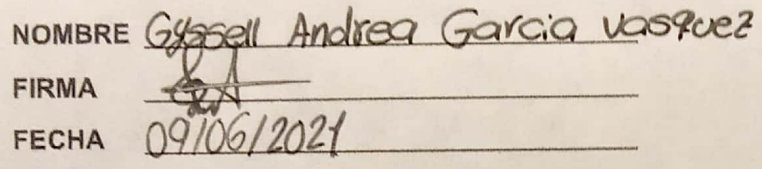 NOMBRE Gyssell Andrea Garcia vasquez
FIRMA
FECHA 09/06/2021